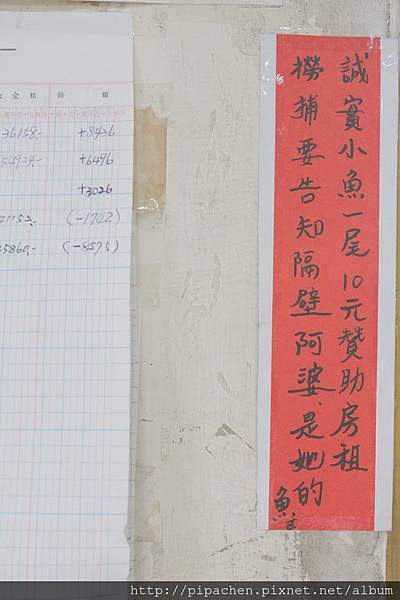 誠實小魚一尾10元贊助房租
撈捕要告知隔壁阿婆、是她的
魚
金額 餘 額
36158.- +8436
54924.- +6496
+3026
41152.- (-1742)
35860.- (-8575)
http://pipachen.pixnet.net/album